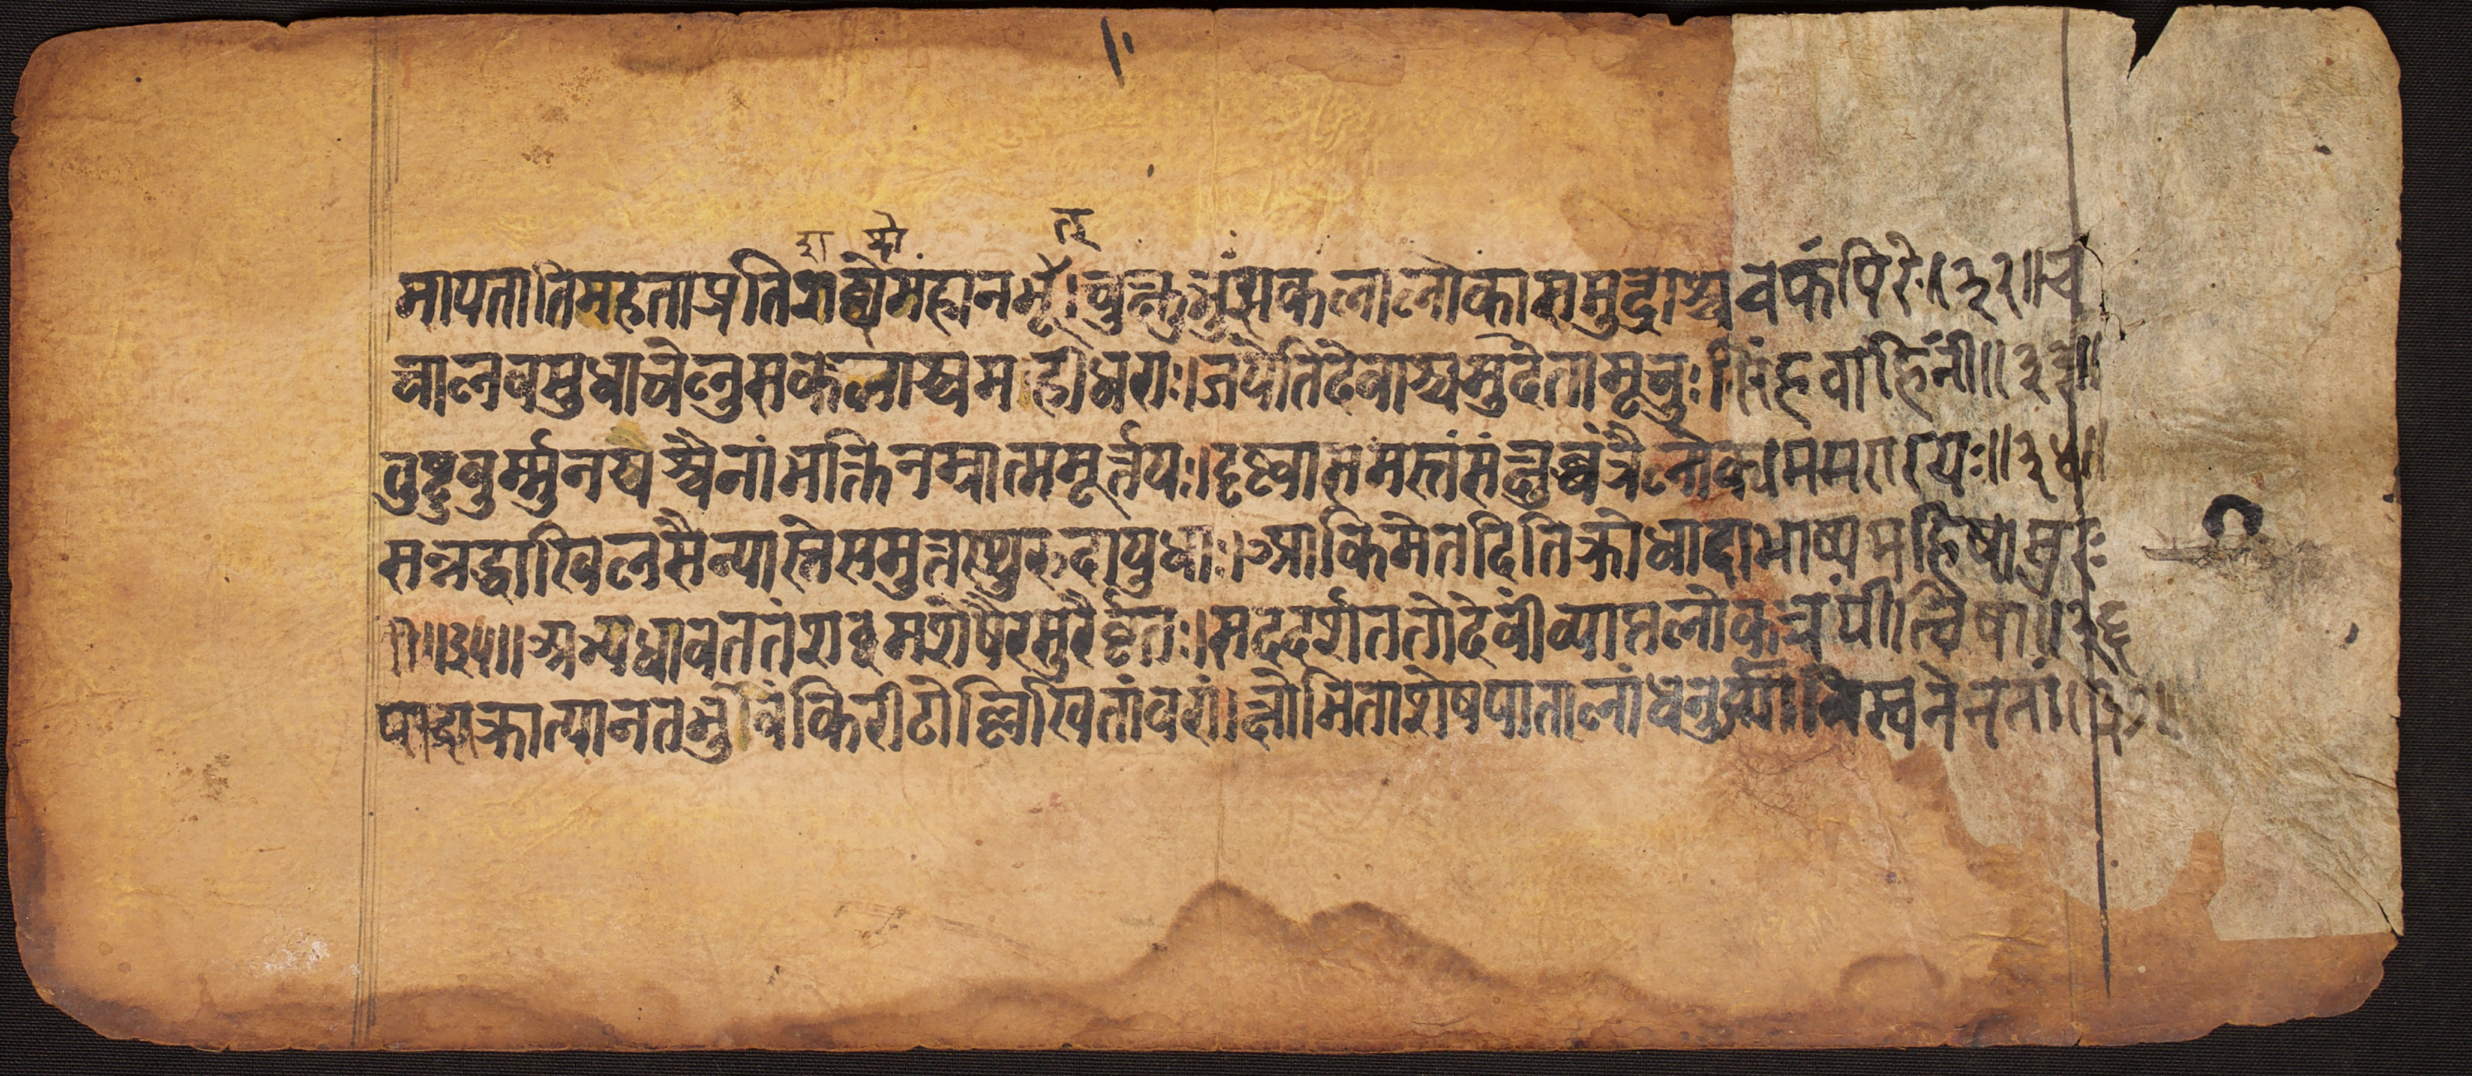 ब्दा ब्दो त्
मापतातिमहताप्रतिशब्दोमहानभूत्।चुक्षुभुःसकलालोकासमुद्राश्चचकंपिरे॥३२॥च
चालवसुधाचेलुसकलाश्चमहीधराः।जयेतिदेवाश्चमुदेतामूचुःसिंहवाहिनी॥३३॥
तुष्टुवुर्म्मुनयश्चैनांभक्तिनम्रात्ममूर्त्तयः।दृष्ट्वासमस्तंसंक्षुब्धंत्रैलोक्यममरारयः॥३४॥
सन्नद्धाखिलसैन्यास्तेसमुत्तस्थुरुदायुधाः।आकिमेतदितिक्रोधादाभाष्यमहिषासुरः
॥३५॥अभ्यधावततंशब्दमशेषैरसुरैर्वृतः।सददर्शततोदेवींव्याप्तलोकत्रयींत्विषा॥३६
पादाक्रात्यानतभुवंकिरीटोल्लिखितांवरां।क्षोभिताशेषपातालांधनुर्ज्यानिस्वनेनतां॥३७॥